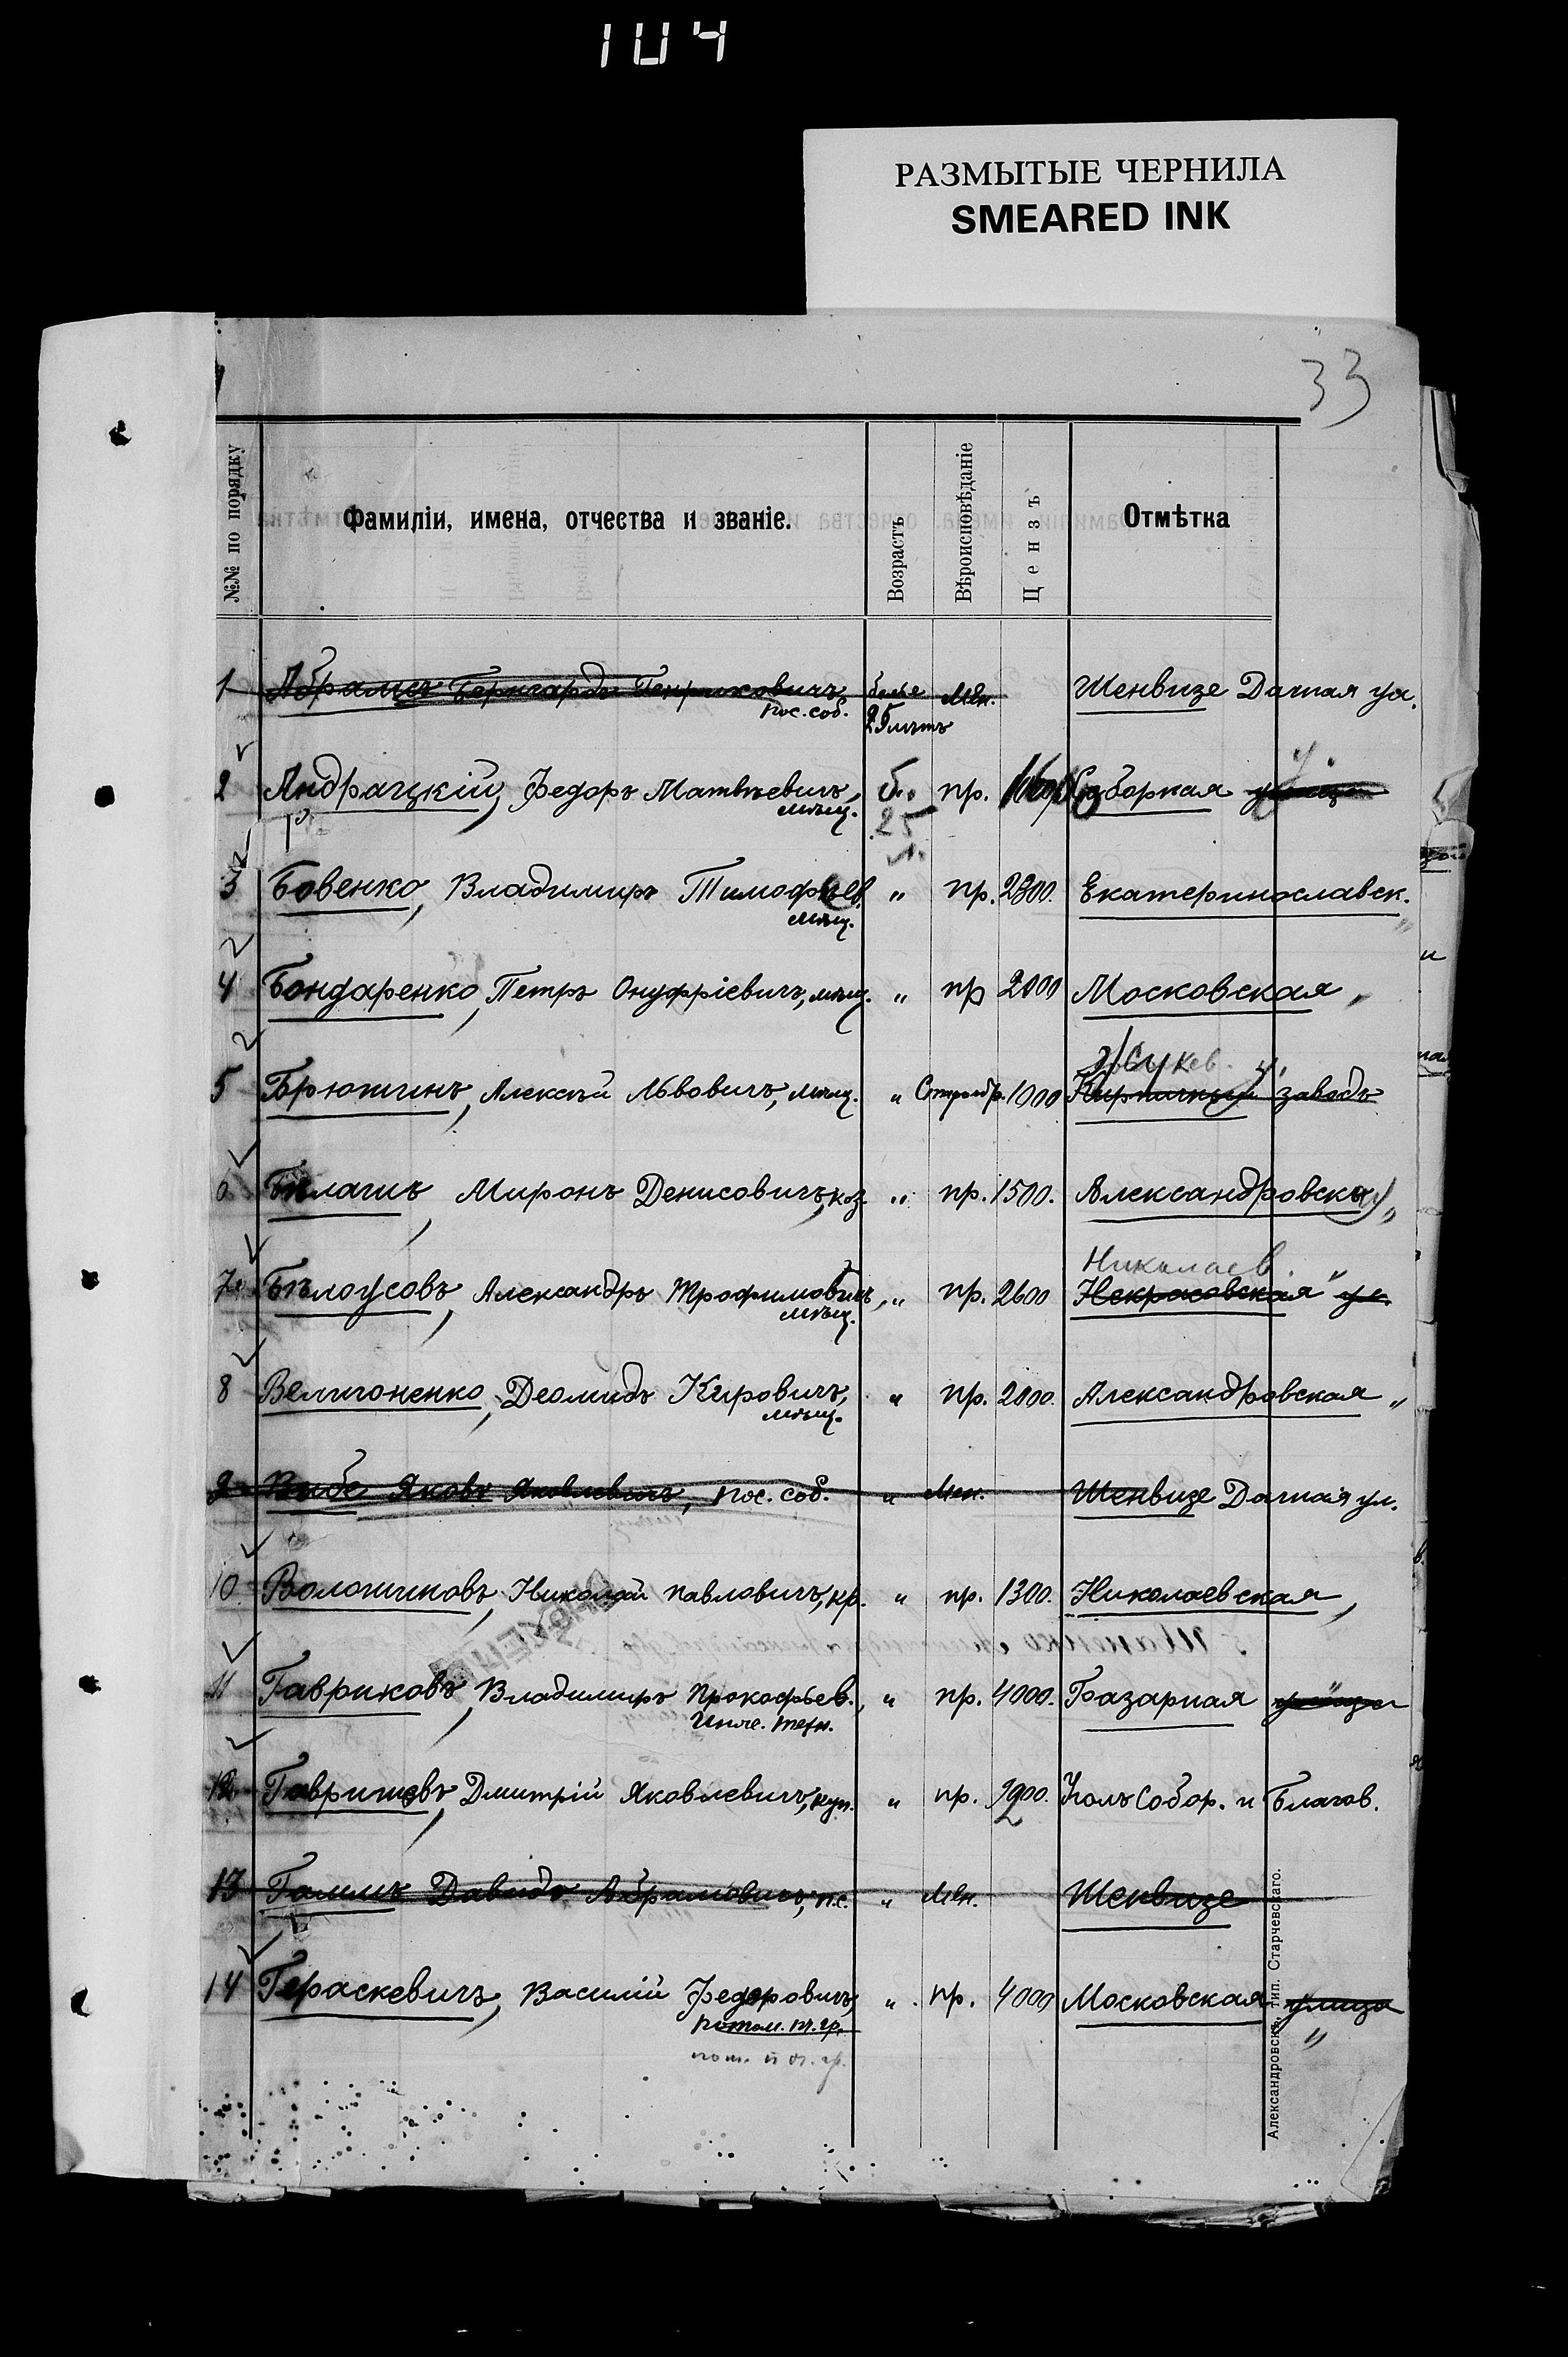 104
РАЗМЫТЫЕ ЧЕРНИЛА
SMEARED INK
33
№№ по порядку Фамиліи, имена, отчества и званіе. Возрастъ Вѣроисповѣданіе Цензъ Отмѣтка
1 Абрамсъ Бернгардъ Генриховичъ пос. соб. более 25 лѣтъ Мен. Шенвизе Дачная ул.
2 Андрацкій, Федоръ Матвѣевичъ, мѣщ. б. 25 л. пр. Соборная
3 Бовенко, Владимиръ Тимофѣев. мѣщ. " пр. 2300. Екатеринославск. "
4 Бондаренко, Петръ Онуфріевичъ, мѣщ. " пр 2000 Московская "
5 Брюшинъ, Алексѣй Львовичъ, мѣщ. " Старообр. 1000 Кирпичный заводъ
6 Бѣлашъ, Миронъ Денисовичъ, коз. " пр. 1500. Александровская "
Николаев. "
7 Бѣлоусовъ, Александръ Трофимовичъ, мѣщ. " пр. 2600 Некрасовская ул.
8 Величоненко, Деомидъ Кировичъ, мѣщ. " пр. 2000. Александровская "
9 Вибе Яковъ Яковлевичъ, пос. соб. " Мен. Шенвизе Дачная ул.
10 Волошиновъ, Николай Павловичъ, кр. " пр. 1300. Николаевская "
11 Гавриковъ, Владимиръ Прокофьев., инж. техн. " пр. 4000. Базарная
12 Гавришевъ, Дмитрій Яковлевичъ, куп. " пр. Уголъ Собор. и Благов.
13 Гаммъ Давидъ Абрамовичъ, п.с. " Мен. Шенвизе
14 Гераскевичъ, Василій Федоровичъ, потом. п. гр. " пр. 4000 Московская улица
пот. п оч. гр. "
Александровскъ, тип. Старчевскаго.